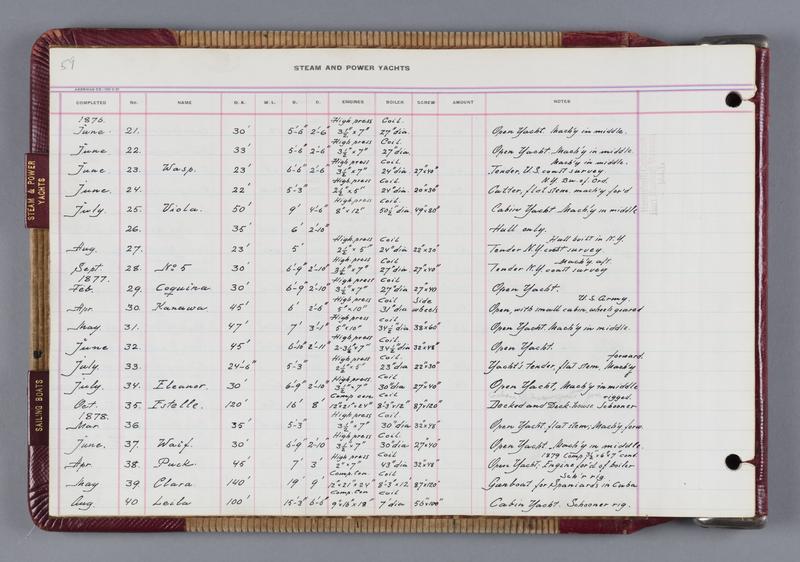 59
STEAM AND POWER YACHTS
COMPLETED No. NAME O.A. W.L. B. D. ENGINES BOILER SCREW AMOUNT NOTES
1876. High press Coil.
June. 21. 30' 5-6" 2-6" 3½" x 7" 27" dia. Open Yacht. Mach'y in middle.
High press Coil.
June 22. 33' 5-6" 2-6" 3½" x 7" 27" dia. Open Yacht. Mach'y in middle.
High press Coil. Mach'y in middle.
June. 23. Wasp. 23' 6-6" 2-6" 3½" x 7" 24" dia 27"x40" Tender, U.S. coast survey.
High press Coil. N.Y. Bu. of Ord.
June. 24. 22' 5-3" 2½" x 5" 24" dia. 20x30" Cutter, flat stem, mach'y for'd
High press Coil.
July. 25. Viola. 50' 9' 4-6" 8" x 12" 50½ dia 49"x80" Cabin Yacht Mach'y in middle
26. 35' 6' 2-10" Hull only.
High press Coil. Hull built in N.Y.
Aug. 27. 23' 5' 2½" x 5" 24" dia 22"x30" Tender N.Y. coast survey
High press Coil. Mach'y aft.
Sept 28 No 5 30' 6-9" 2-10" 3½" x 7" 27" dia 27"x40" Tender N.Y. coast survey
1877. High press Coil
Feb. 29. Coquina 30' 6-9" 2-10" 3½" x 7" 27" dia 27x40 Open Yacht.
High press Coil Side U.S. Army.
Apr. 30. Kanawa 45' 6' 2-6" 5" x 10" 31" dia wheels Open, with small cabin, wheels geared
High press Coil.
May 31. 47' 7' 3-1" 5" x 10" 34½ dia 38x60" Open Yacht. Mach'y in middle.
High press Coil.
June 32. 45' 6-10" 2-11" 2-3½" x 7" 34½" dia 32"x48" Open Yacht.
High press Coil. forward.
July. 33. 24-6" 5-3" 2½" x 5" 23" dia 22"x30" Yacht's tender, flat stem, Mach'y
High press Coil.
July. 34. Eleanor. 30' 6-9" 2-10" 3½" x 7" 30" dia 27"x40" Open Yacht, Mach'y in middle
Comp. con. Coil rigged.
Oct. 35. Estelle. 120' 16' 8' 12" x 21" x 24" 8-3" x 12" 87"x120" Decked and Deck-house Schooner
1878. High press Coil
Mar 36 35' 5-3" 3½" x 7" 30" dia 32"x48" Open Yacht, flat stem, Mach'y forw.
High press Coil
June. 37. Waif. 30' 6-9" 2-10" 3½" x 7" 30" dia 27"x40" Open Yacht. Mach'y in middle
High press Coil
Apr 38. Puck. 45' 7' 3' 43" dia 32"x48" Open Yacht, Engine for'd of boiler
Comp. Con. Coil Sch'r rig.
May 39 Clara 140' 19' 9' 12" x 21" x 24" 8-3" x 12 87"x120" Gunboat for Spaniards in Cuba
Comp. Con Coil
Aug. 40 Leila 100' 15-3" 6-6" 9" x 16" x 18" 7' dia 56"x100" Cabin Yacht. Schooner rig.
STEAM & POWER
YACHTS
SAILING BOATS